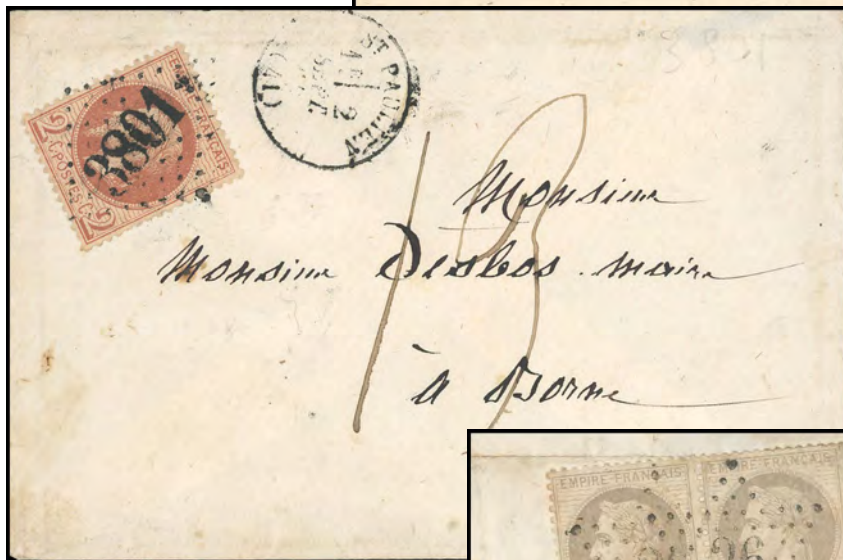 3801
EMPIRE FRANÇAIS
2 C. POSTES C. 2
3801
ST PAULIEN
2
(41)
13
Monsieur
Monsieur Desbos maire
à Borne
EMPIRE FRANÇAIS EMPIRE FRANÇAIS